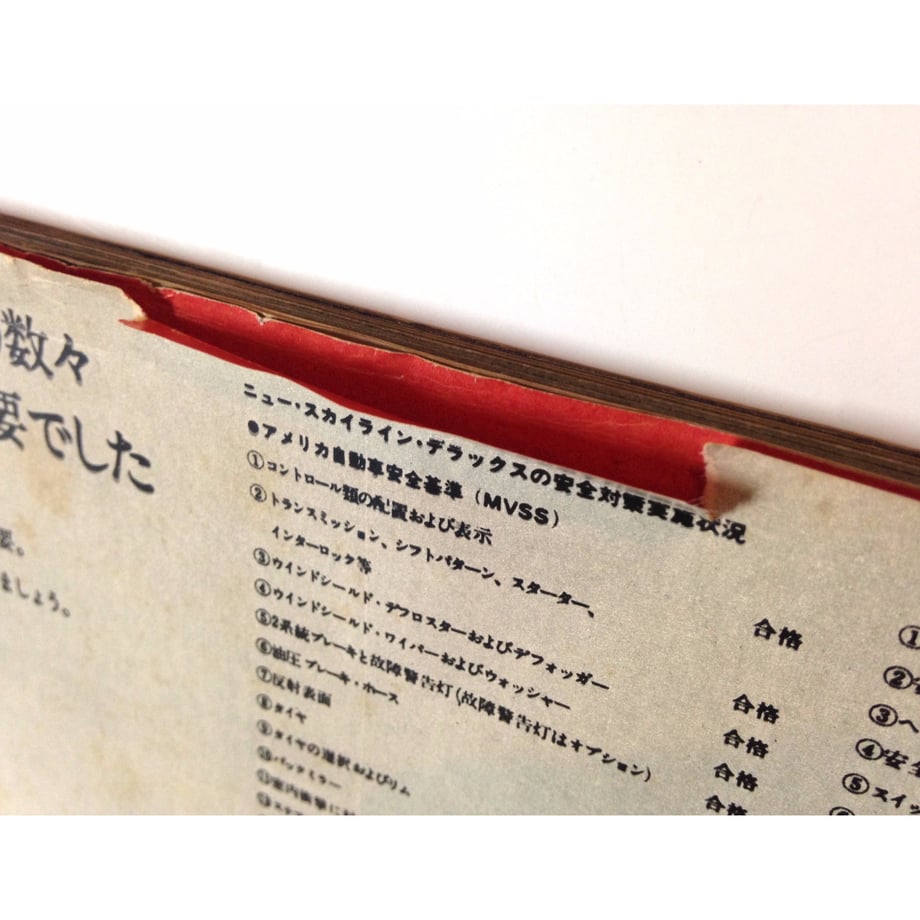 数々
要でした
要。
ましょう。
ニュー・スカイライン・デラックスの安全対策実施状況
●アメリカ自動車安全基準(MVSS)
①コントロール類の配置および表示
②トランスミッション、シフトパターン、スターター、
インターロック等 合格
③ウインドシールド・デフロスターおよびデフォッガー 合格
④ウインドシールド・ワイパーおよびウォッシャー 合格
⑤2系統ブレーキと故障警告灯(故障警告灯はオプション) 合格
⑥油圧ブレーキ・ホース 合格
⑦反射表面
⑧タイヤ
⑨タイヤの選択およびリム
⑩バックミラー
⑪室内衝撃に
①
②
③ヘ
④安全
⑤スイッ